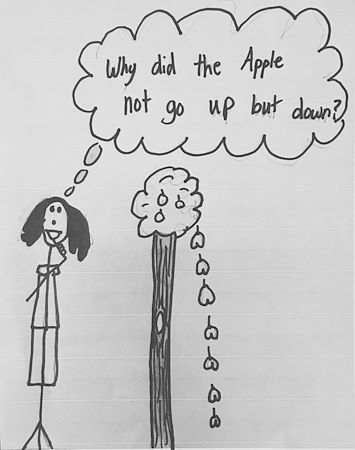 Why did the Apple
not go up but down?